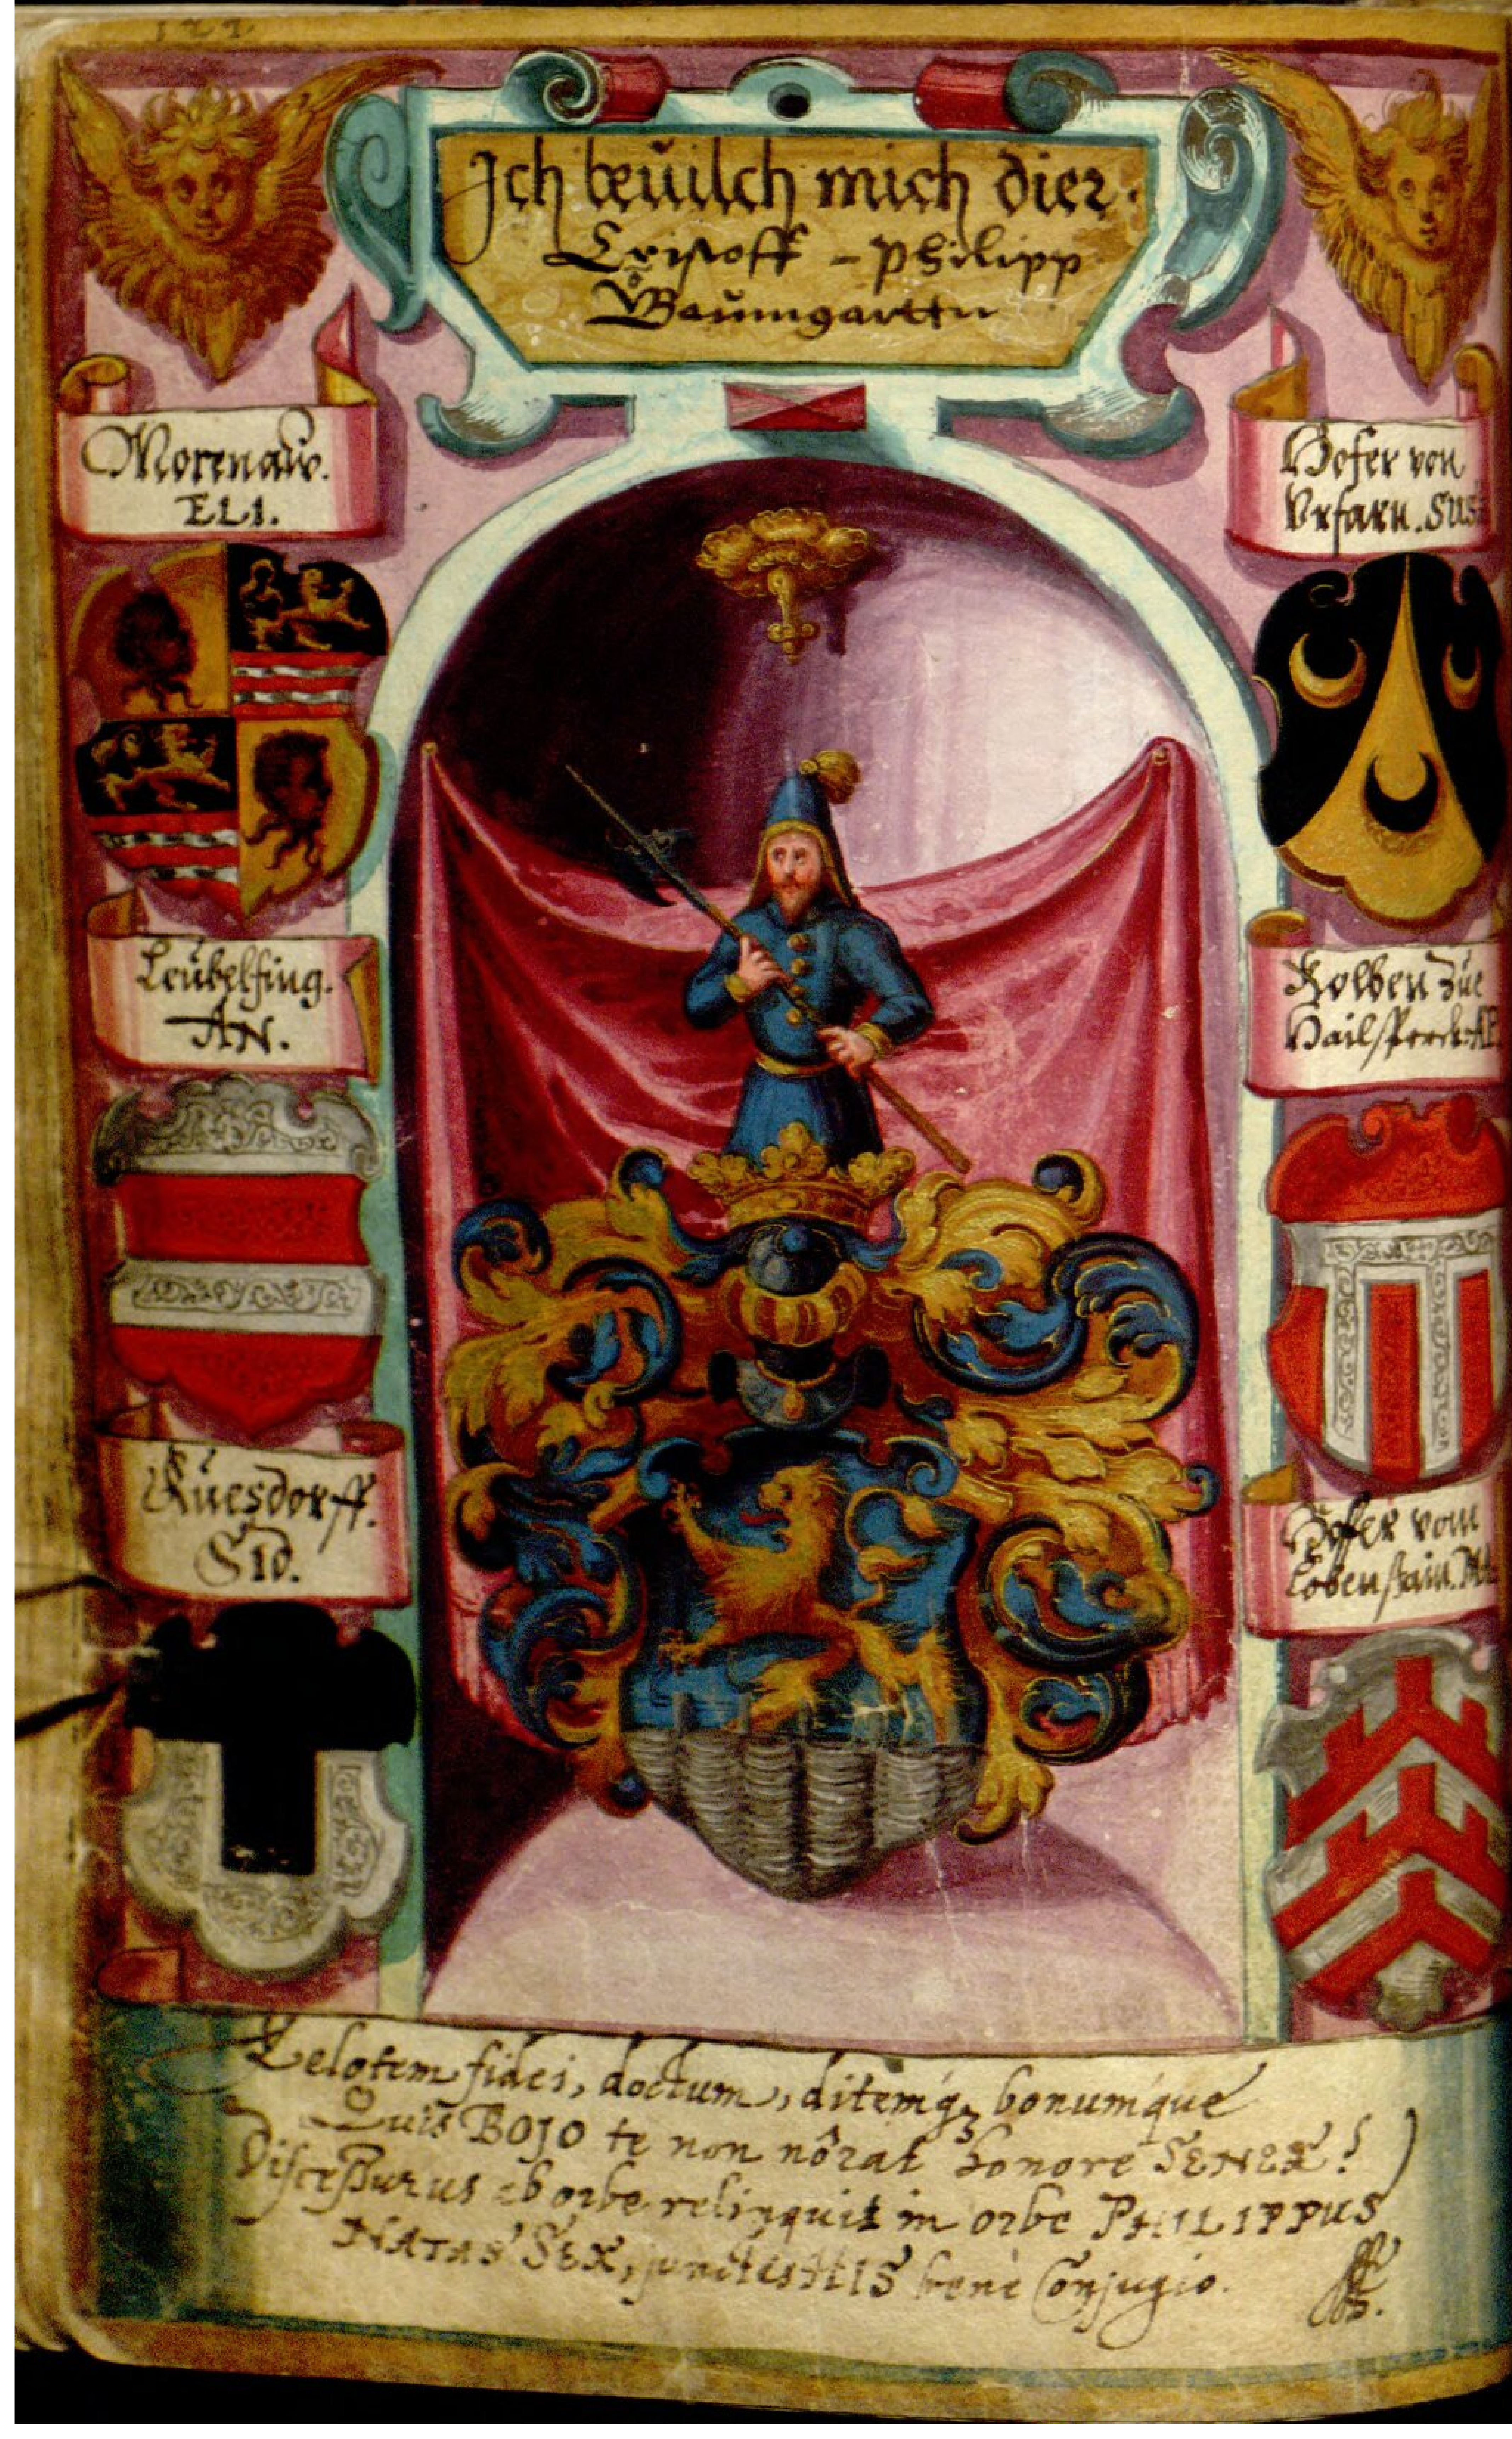 122.
Ich beuilch mich dier.
Cristoff - Philipp
v Baumgarttn
Morenaw.
ELI.
Hofer von
Vrfarn. SUS
Leubelfing.
AN.
Kolben zue
Hailsperck. AE
Ruesdorff.
SID.
Hoffer vom
Lobenstain. MA
Zelotem fidei, doctum, ditemq; bonumque
Quis BOJO te non nôrat honore SENEX!
Discessurus ab orbe relinquit in orbe PHILIPPUS
NATAS SEX, junctas HIS bene Conjugio.